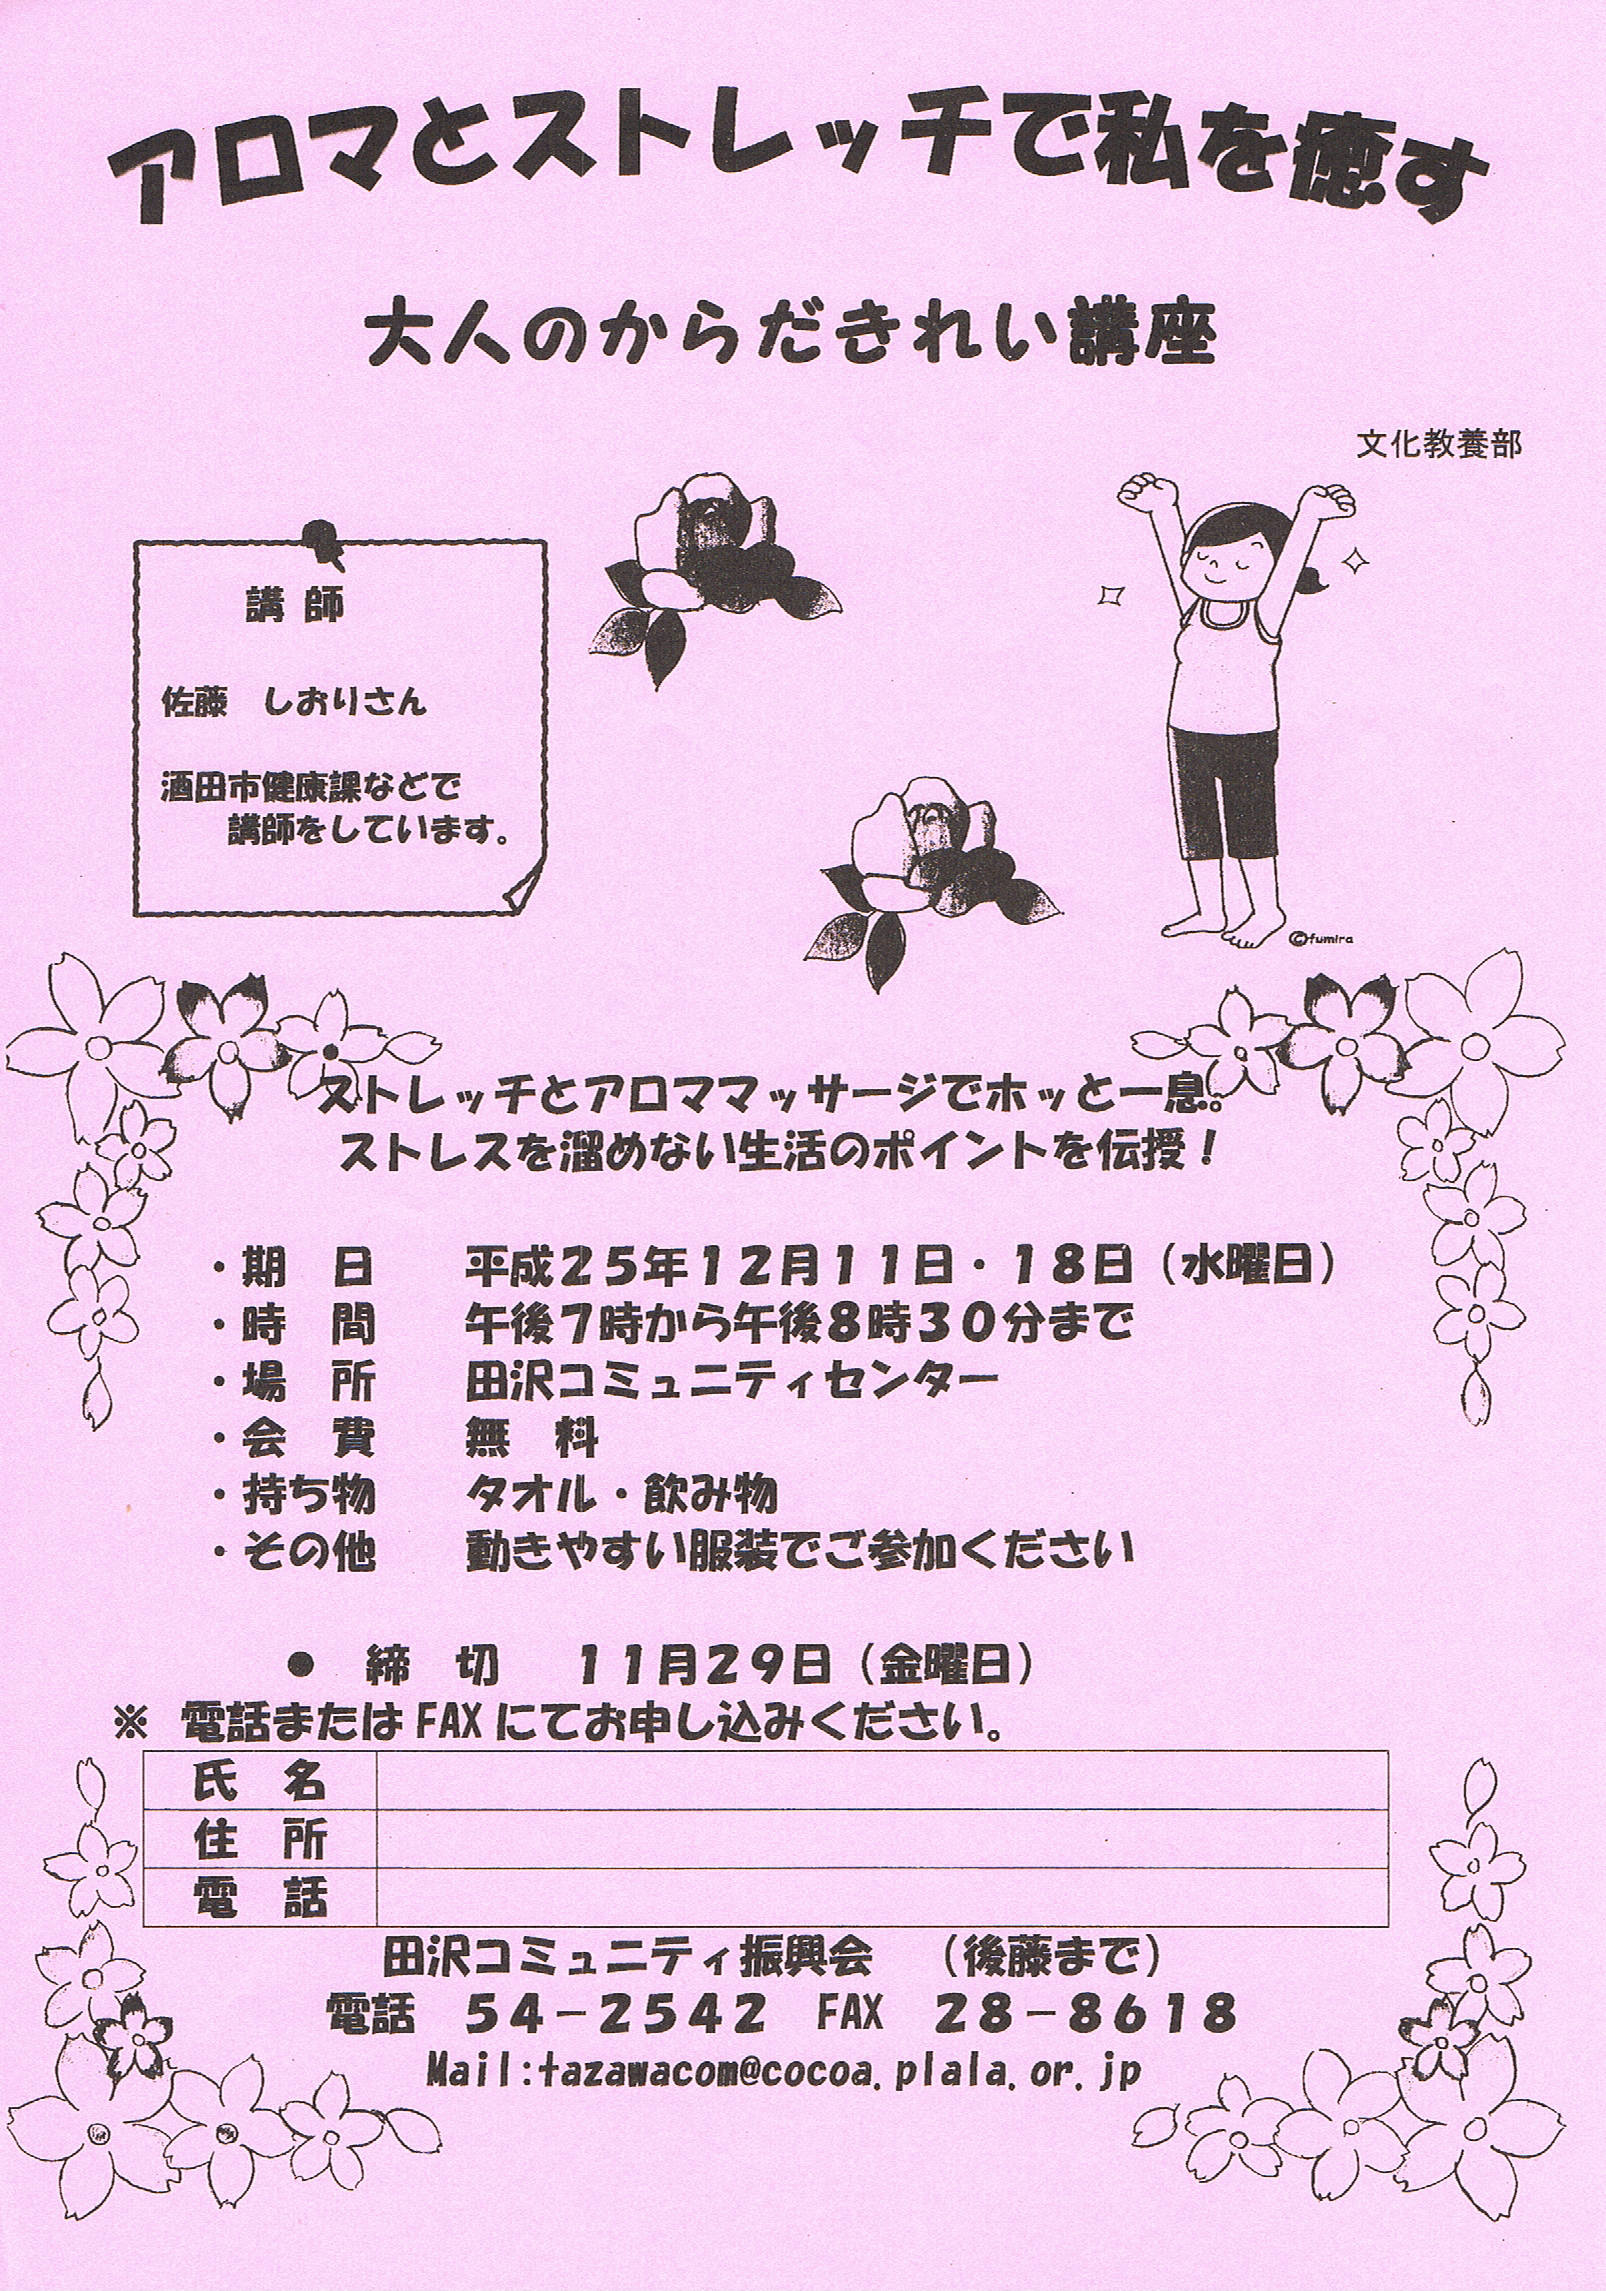 アロマとストレッチで私を癒す
大人のからだきれい講座
文化教養部
講 師
佐藤　しおりさん
酒田市健康課などで
講師をしています。
©fumira
ストレッチとアロママッサージでホッと一息。
ストレスを溜めない生活のポイントを伝授！
・期　日　　平成２５年１２月１１日・１８日（水曜日）
・時　間　　午後７時から午後８時３０分まで
・場　所　　田沢コミュニティセンター
・会　費　　無　料
・持ち物　　タオル・飲み物
・その他　　動きやすい服装でご参加ください
●　締　切　　１１月２９日（金曜日）
※　電話または FAX にてお申し込みください。
氏　名
住　所
電　話
田沢コミュニティ振興会　（後藤まで）
電話　５４－２５４２　FAX　２８－８６１８
Mail:tazawacom@cocoa.plala.or.jp